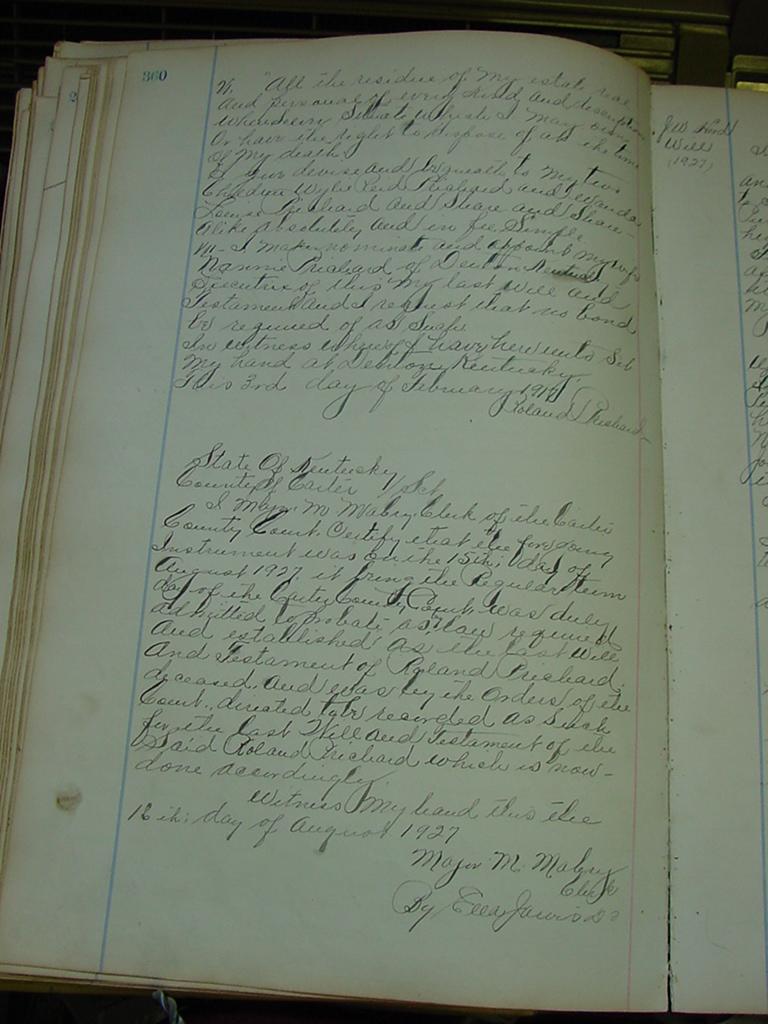 360
"All the residue of my estate real
and personal of every kind and description
wherever situate which I may own
Or have the right to dispose of at the time
of my death
I give devise and bequeath to my two
Children Wylie Reid Prichard and Wanda
Louise Prichard and Share and Share
alike absolutely and in fee Simple
I make, nominate and appoint my wife
Nannie Prichard of Denton Kentucky
Executrix of this my last will and
Testament and I request that no bond
be required of as Such
In witness whereof I have hereunto Set
My hand at Denton, Kentucky.
This 3rd day of February
Roland Prichard
State Of Kentucky
County Of Carter /Sct
I Major M Mabry Clerk of the Carter
County Court. Certify that the foregoing
Instrument was on the 15th, day of
August 1927, it being the Regular term
day of the Carter County Court. was duly
admitted to probate as law required
And established as the last will
And Testament of Roland Prichard.
deceased. And was by the Orders of the
Court., directed to be recorded as Such
for the last Will and Testament of the
Said Roland Prichard which is now-
done accordingly.
Witness my hand this the
day of August 1927
Major. M. Mabry
Clerk
By Jarvis
J W
Will
(1927)